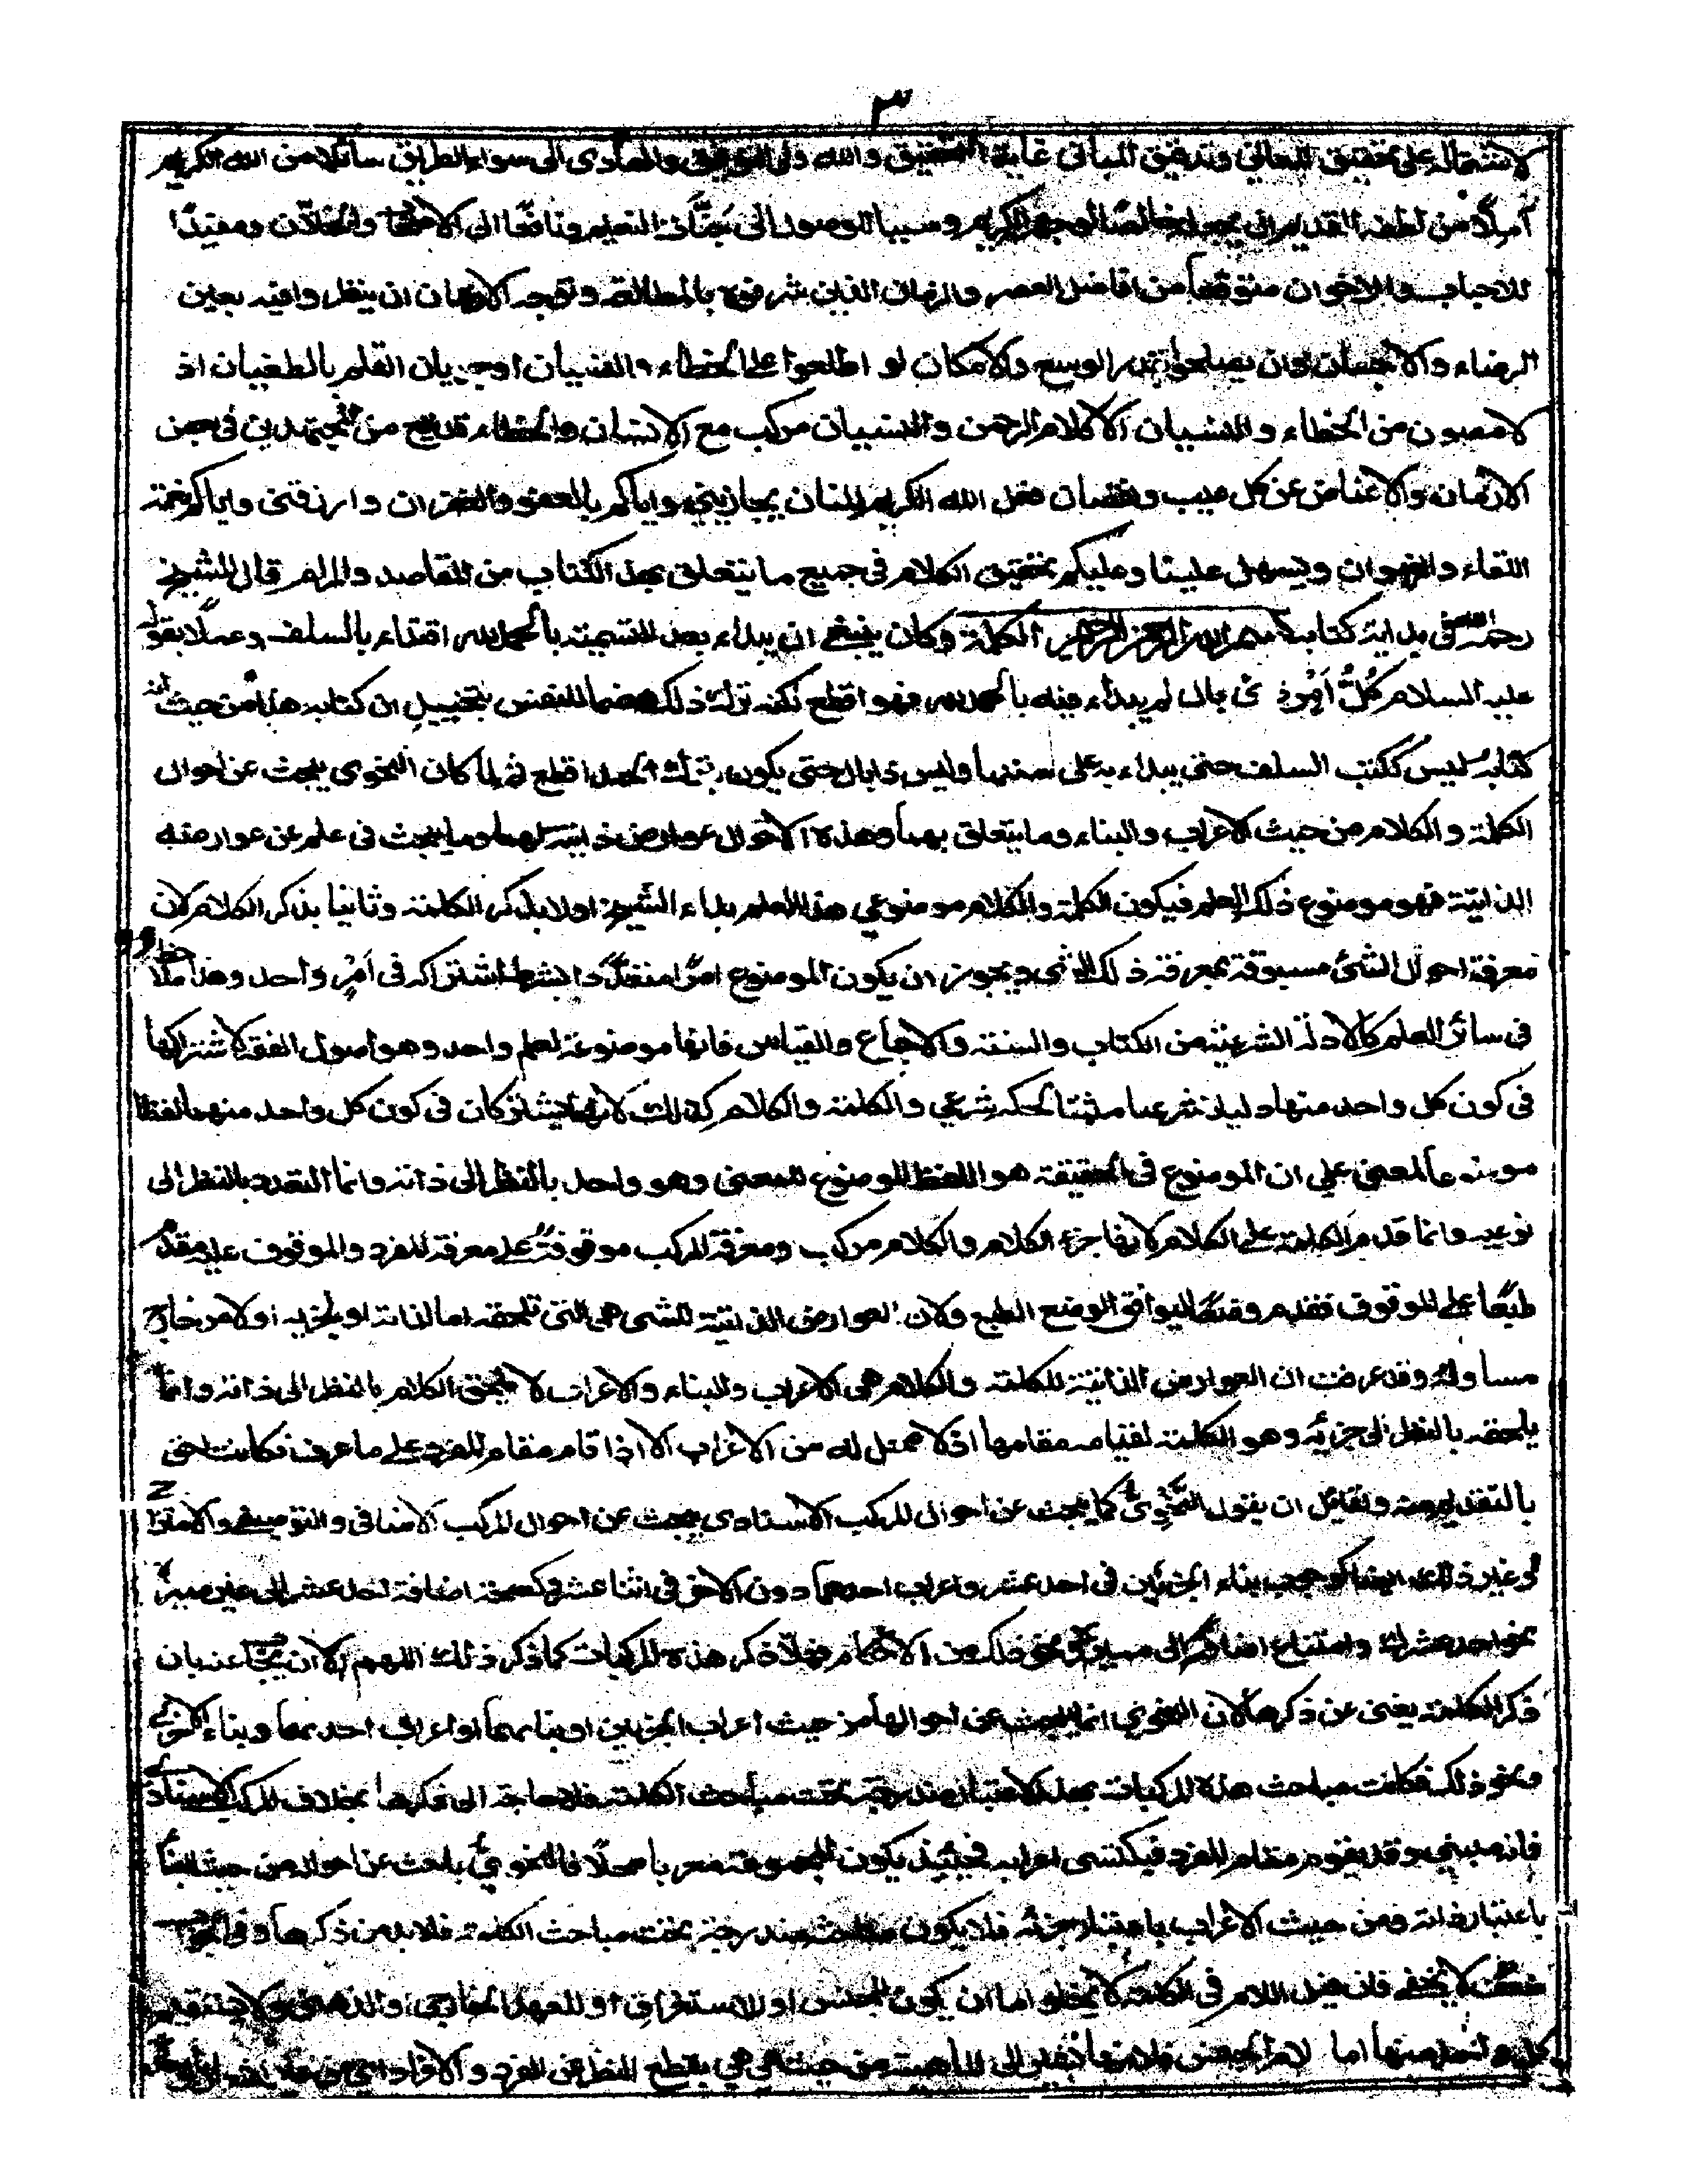 ٣
لاشتماله على تحقيق المعاني وتدقيق المباني غاية التحقيق والله ولى التوفيق والهادى الى سواء الطريق سائلا من الله الكريم
آملا من لطفه القديم ان يجعله خالصا لوجهه الكريم وسببا للوصول الى جنات النعيم ونافعا الى الاصحاب والخلان ومفيدًا
للاحباب والاخوان متوقعا من افاضل العصر والزمان الذين شرفوه بالمطالعة وتوجه الاذهان ان ينظروا فيه بعين
الرضاء والاحسان وان يصلحوا بقدر الوسع والامكان لو اطلعوا على الخطاء والنسيان او جريان القلم بالطغيان اذ
لا مصون من الخطاء والنسيان الا كلام الرحمن والنسيان مركب مع الانسان والخطاء قد يقع من المجتهدين فى بعض
الازمان والاغماض عن كل عيب ونقصان فعل الله الكريم المنان يجازيني واياكم بالعفو والغفران وارزقنى واياكم نعمة
اللقاء والرضوان ويسهل علينا وعليكم تحقيق الكلام فى جميع ما يتعلق بهذا الكتاب من المقاصد والمرام قال الشيخ
رحمه الله فى بداية كتابه بسم الله الرحمن الرحيم الكلمة وكان ينبغى ان يبداء بعد التسمية بالحمد لله اقتداء بالسلف وعملًا بقوله
عليه السلام كُلُّ اَمْرٍ ذى بال لم يبداء فيه بالحمد لله فهو اقطع لكنه ترك ذلك هضما للنفس بتخييل ان كتابه هذا من حيث انه
كتابه ليس ككتب السلف حتى يبداء به على سننها وليس ذا بال حتى يكون بترك الحمد اقطع ثم لما كان النحوى يبحث عن احوال
الكلمة والكلام من حيث الاعراب والبناء وما يتعلق بهما وهذه الاحوال عوارض ذاتية لهما وما يبحث فى علم عن عوارضه
الذاتية فهو موضوع ذلك العلم فيكون الكلمة والكلام موضوعي هذا العلم بداء الشيخ اولا بذكر الكلمة وثانيا بذكر الكلام لان
معرفة احوال الشئ مسبوقة بمعرفة ذلك الشئ ويجوز ان يكون الموضوع امرًا متعددًا بشرط اشتراكه فى اَمْرٍ واحد وهذا
فى سائر العلم كالادلة الشرعية من الكتاب والسنة والاجماع والقياس فانها موضوعة لعلم واحد وهو اصول الفقه لاشتراكها
فى كون كل واحد منها دليلا شرعيا مثبتا لحكم شرعي والكلمة والكلام كذلك لانهما يشتركان فى كون كل واحد منهما لفظا
موضوعا لمعنى على ان الموضوع فى الحقيقة هو اللفظ الموضوع للمعنى وهو واحد بالنظر الى ذاته وانما التعدد بالنظر الى
نوعيه وانما قدم الكلمة على الكلام لانها جزء الكلام والكلام مركب ومعرفة المركب موقوفة على معرفة المفرد والموقوف عليه مقدم
طبعًا على الموقوف فقدم وضعًا ليوافق الوضع الطبع ولان العوارض الذاتية للشى هى التى تلحقه اما لذاته او لجزئه او لامر خارج
مساو له وقد عرفت ان العوارض الذاتية للكلمة والكلام هى الاعراب والبناء والاعراب لا يلحق الكلام بالنظر الى ذاته وانما
يلحقه بالنظر الى جزئه وهو الكلمة لقيامه مقامها اذ لا محل له من الاعراب الا اذا قام مقام المفرد على ما عرف فكانت احق
بالتقديم منه ولقائل ان يقول النَّحْوِىُّ كما يبحث عن احوال المركب الاسنادى يبحث عن احوال المركب الاضافى والتوصيفى والامتزاجى
او غير ذلك ايضا كوجوب بناء الجزئين فى احد عشر واعراب احدهما دون الاخر فى اثنا عشر وكصحة اضافة احد عشر الى غير مميزه
نحو احد عشرك وامتناع اضافته الى مميزه ونحو ذلك من الاحكام فهلا ذكر هذه المركبات كما ذكر ذلك اللهم الا ان يجاب عنه بان
ذكر الكلمة يغنى عن ذكرها لان النحوى انما يبحث عن احوالها من حيث اعراب الجزئين او بنائهما او اعراب احدهما وبناء الاخر
ونحو ذلك فكانت مباحث هذه المركبات بهذا الاعتبار مندرجة تحت مباحث الكلمة فلا حاجة الى ذكرها بخلاف المركب الاسنادى
فانه مبنى وقد يقوم مقام المفرد فيكتسى اعرابه فحينئذ يكون المجموعة معربا محلا فالنحوىُّ باحث عن احواله من حيث البناء
باعتبار ذاته ومن حيث الاعراب باعتبار جزئه فلا يكون مباحثه مندرجة تحت مباحث الكلمة فلا بد من ذكرها وفى
ضعف لا يخفى فان قيل اللام فى الكلمة لا يخلو اما ان يكون للجنس او للاستغراق او للعهد الخارجى او الذهنى ولا يستقيم
كل واحد منها اما لام الجنس فلانها تشير الى الماهية من حيث هى هى بقطع النظر عن المفرد والافراد